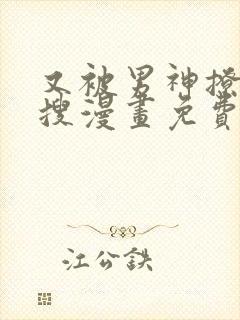 又被男神撩
搜漫畫免費
江公鉄